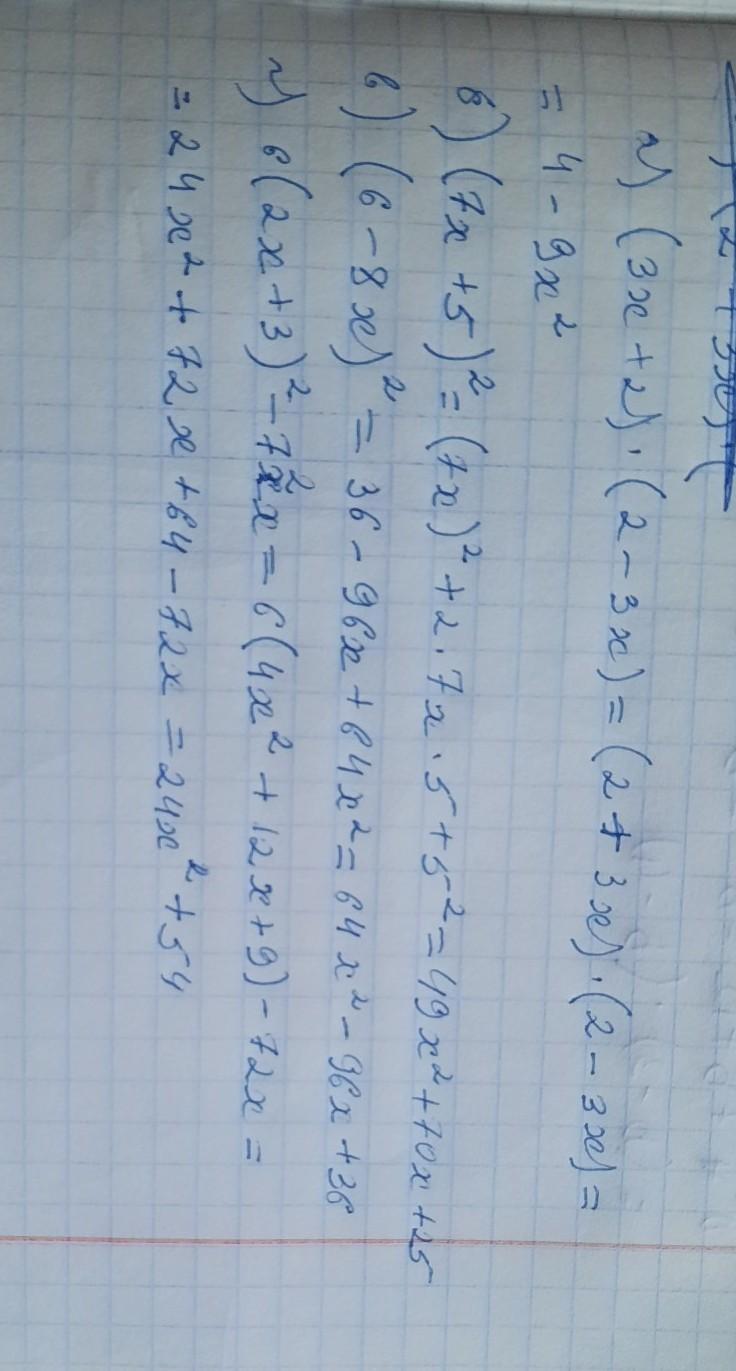 (2 + 3x) (
а) (3x + 2) · (2 - 3x) = (2 + 3x) · (2 - 3x) =
= 4 - 9x²
б) (7x + 5)² = (7x)² + 2 · 7x · 5 + 5² = 49x² + 70x + 25
в) (6 - 8x)² = 36 - 96x + 64x² = 64x² - 96x + 36
г) 6(2x + 3)² - 72x = 6(4x² + 12x + 9) - 72x =
= 24x² + 72x + 64 - 72x = 24x² + 54